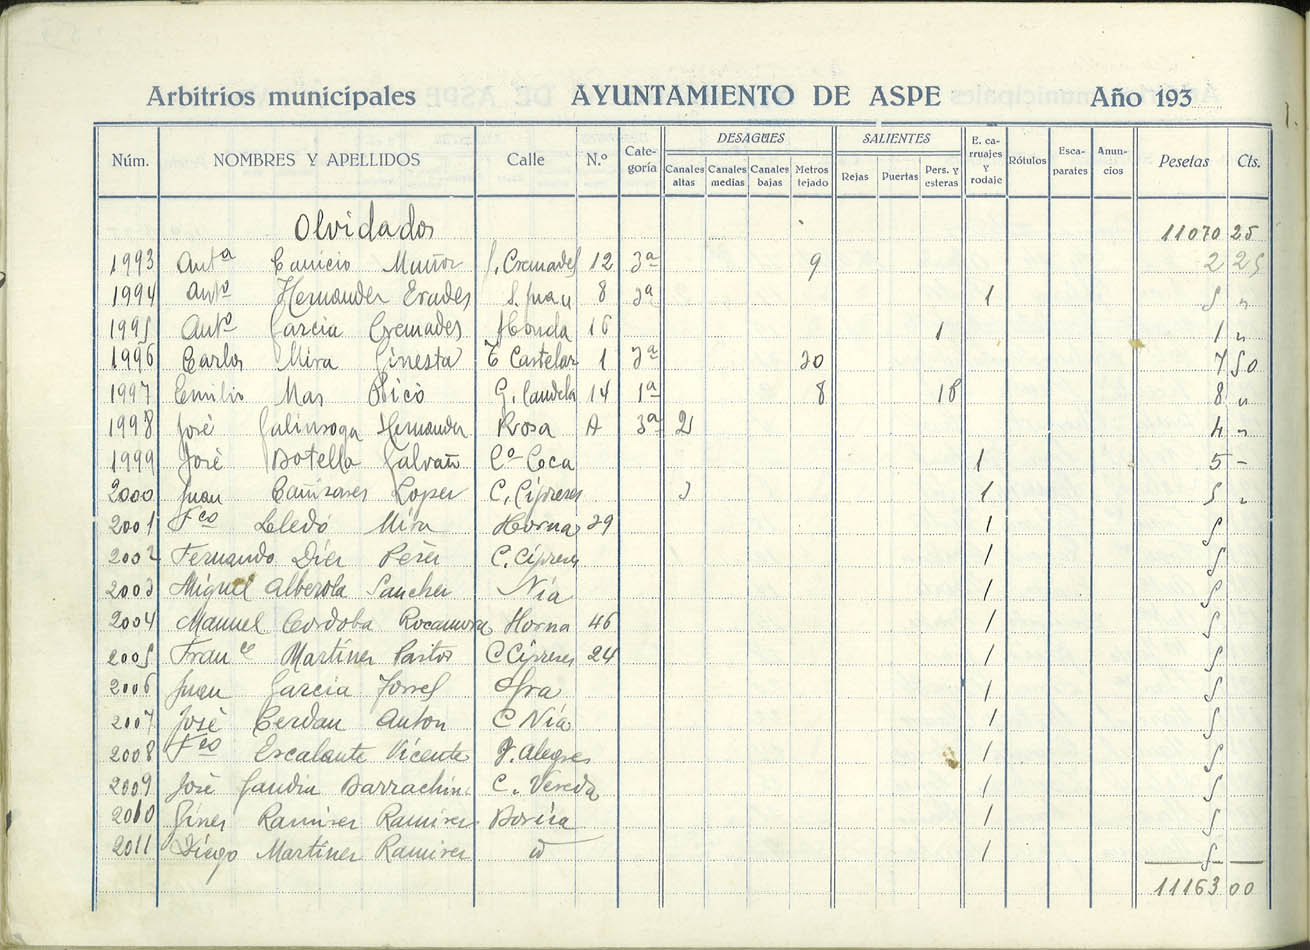 Arbitrios municipales AYUNTAMIENTO DE ASPE Año 193
Núm. NOMBRES Y APELLIDOS Calle N.º Cate-goría DESAGÜES Canales altas Canales medias Canales bajas Metros tejado SALIENTES Rejas Puertas Pers. y esteras E. ca-rruajes y rodaje Rótulos Esca-parates Anun-cios Pesetas Cts.
Olvidados 11070 25
1993 Antª Cañicio Muñoz J. Cremades 12 3ª 9 2 25
1994 Antº Hernandez Erades S. Juan 8 2ª 1 5 "
1995 Antº Garcia Cremades Honda 16 1 1 "
1996 Carlos Mira Ginesta E Castelar 1 2ª 20 7 50
1997 Emilio Mas Picó G. Candela 14 1ª 8 18 8 "
1998 José Galinsoga Hernandez Rosa A 3ª 2 4 "
1999 José Botella Galvañ Cº Coca 1 5 -
2000 Juan Cañizares Lopez C. Cipreses 1 5 "
2001 Fco Lledó Mira Horna 29 1 5
2002 Fernando Díez Pérez C. Cipreses 1 5
2003 Miguel Alberola Sanchez Nía 1 5
2004 Manuel Cordoba Rocamora Horna 46 1 5
2005 Franco Martínez Pastor C Cipreses 24 1 5
2006 Juan Garcia Torres 1 5
2007 José Cerdan Anton C Nía 1 5
2008 Fco Escalante Vicente P. Alegres 1 5
2009 José Gandia Barrachina C. Vereda 1 5
2010 Ginés Ramirez Ramirez Borisa 1 5
2011 Diego Martínez Ramirez id 1 5
11163 00